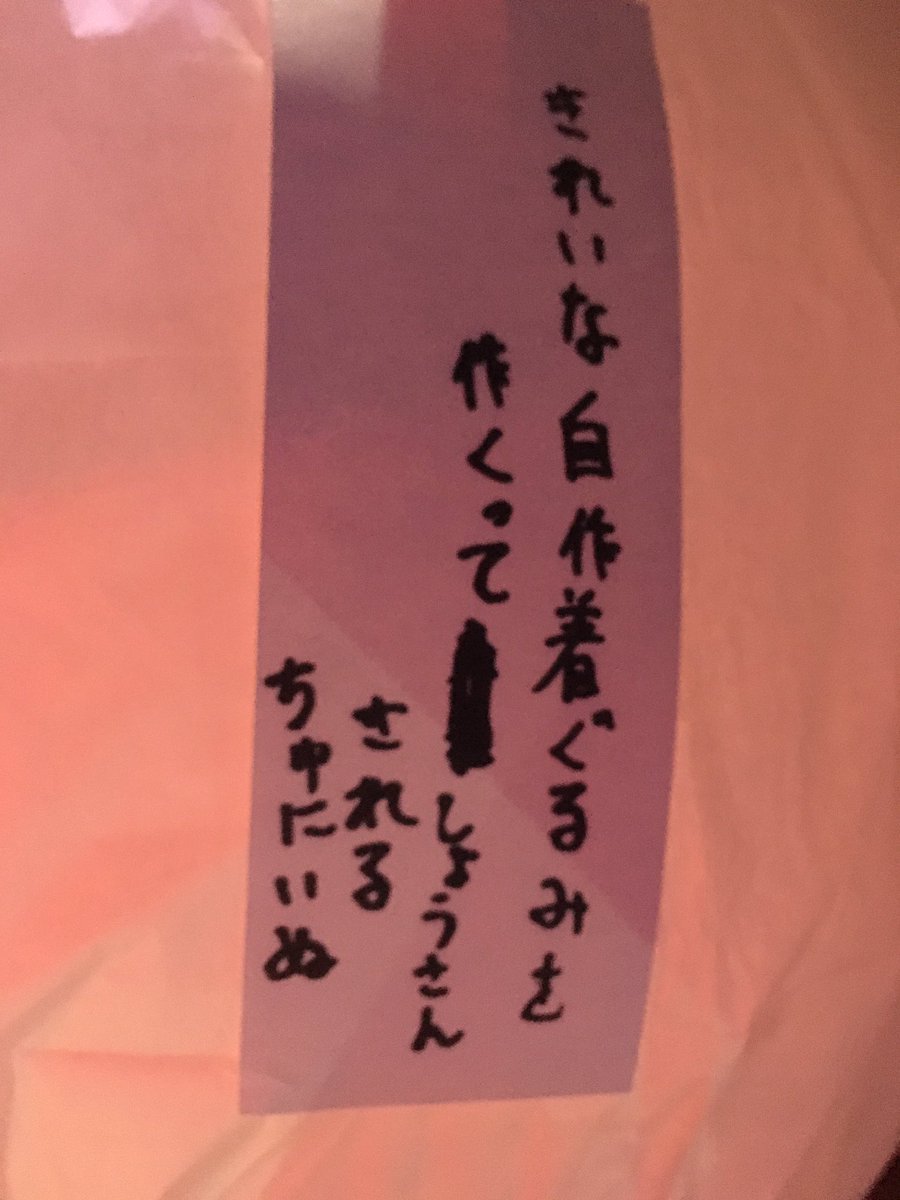 きれいな自作着ぐるみを
作くって
しょうさん
される
ちゅにいぬ